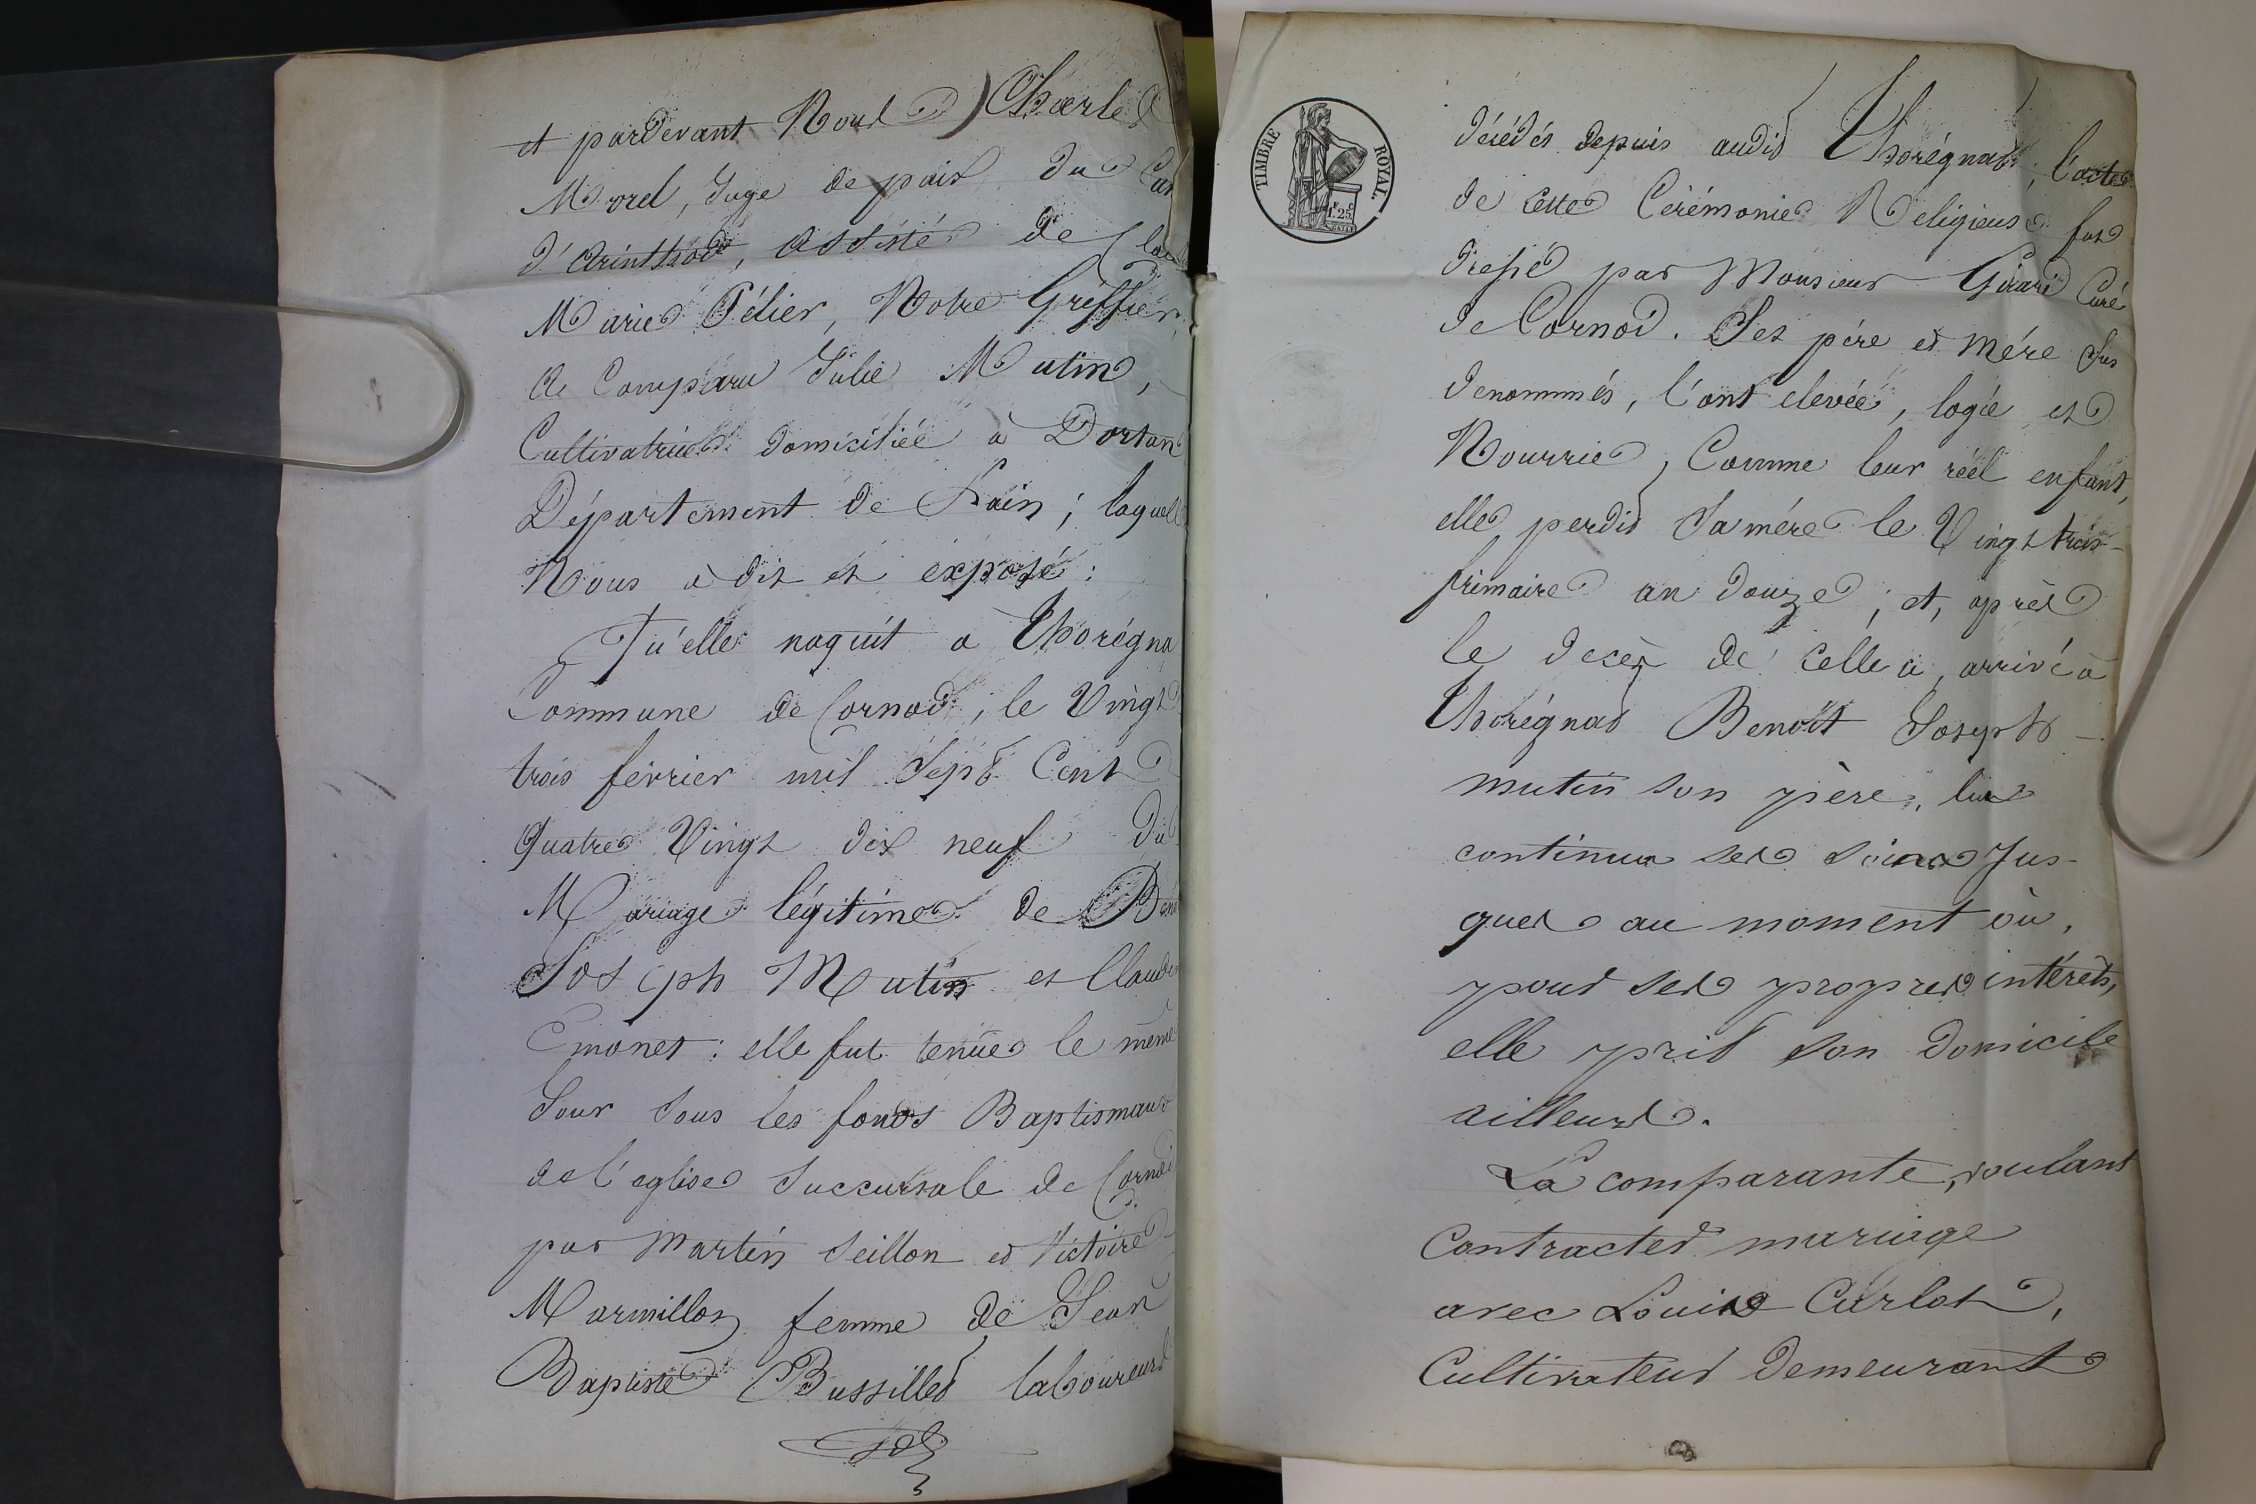 et pardevant Nous Charles
Morel, Juge de paix du Can
d'arinthod, assisté de Clau
Marie Pélier, Notre Greffier,
a Comparu Julie Mutin,
Cultivatrice domiciliée à Dortan
Département de Lain; laquelle
Nous a dit et éxposé:
Qu'elle naquit a Thorégna
Commune de Cornod, le Vingt
trois février mil Sept Cent
Quatre Vingt dix neuf du
Mariage légitime de Ben
Joseph Mutin et Claudi
Emonet: elle fut tenüe le même
Jour Sous les fonds Baptismaux
de l'eglise Succursale de Cornod
par Martin Seillon et Victoire
Marmillon femme de Jean
Baptiste Bussillet laboureurs
TIMBRE ROYAL.
1f 25c
décédés depuis audit Thorégnat; l'acte
de cette Cérémonie Religieuse fut
dressé par Monsieur Girard Curé
de Cornod. Ses père et mére Sus
denommés, l'ont elevée, logée et
Nourrie, Comme leur réel enfant,
elle perdit Sa mére le Vingt trois
frimaire an douze; et, après
le décès de celle ci, arrivé à
Thorégnat Benoît Joseph
mutin son père, lui
continua ses soins Jus-
ques au moment où,
pour ses propres intérêts,
elle prit son domicile
ailleurs.
La comparante, voulant
Contracter mariage
avec Louis Carlot,
Cultivateur demeurant